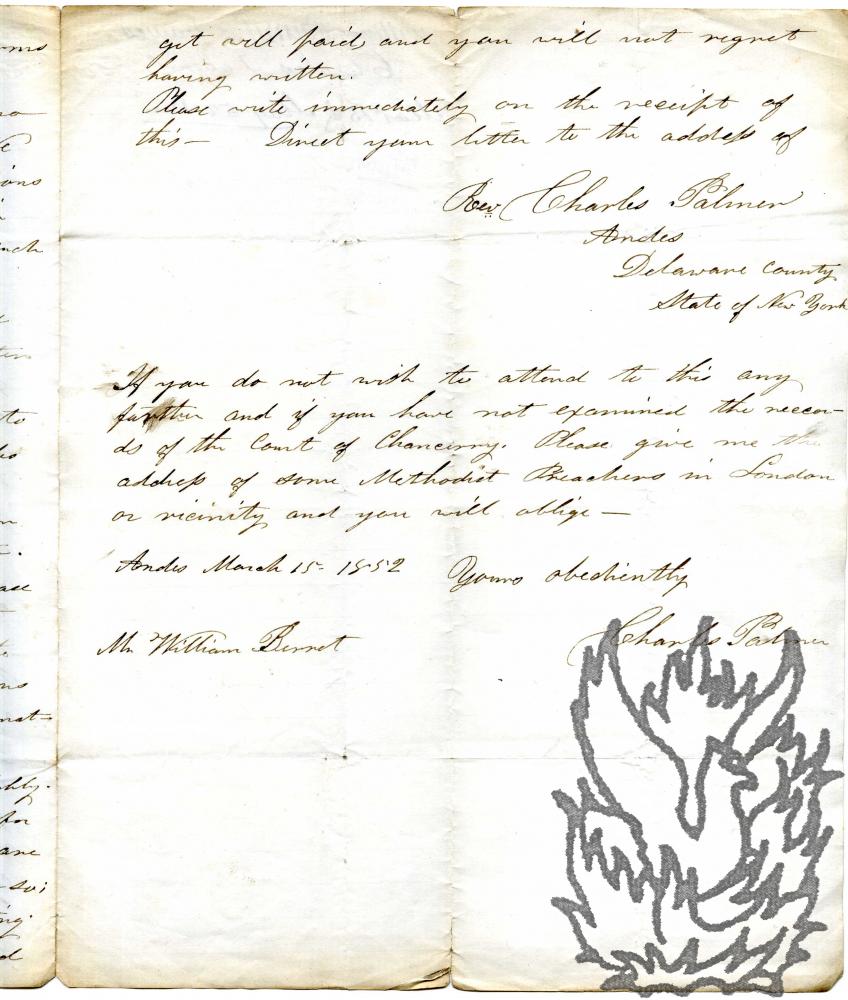 get well paid, and you will not regret
having written.
Please write immediately on the receipt of
this— Direct your letter to the address of
Rev. Charles Palmer
Andes
Delaware County
State of New York
If you do not wish to attend to this any
further and if you have not examined the recor-
ds of the Court of Chancerry. Please give me the
address of some Methodist Preachers in London
or vicinity and you will oblige—
Andes March 15- 1852 Yours obediently
Charles Palmer
Mr William Bennet
to
for
are